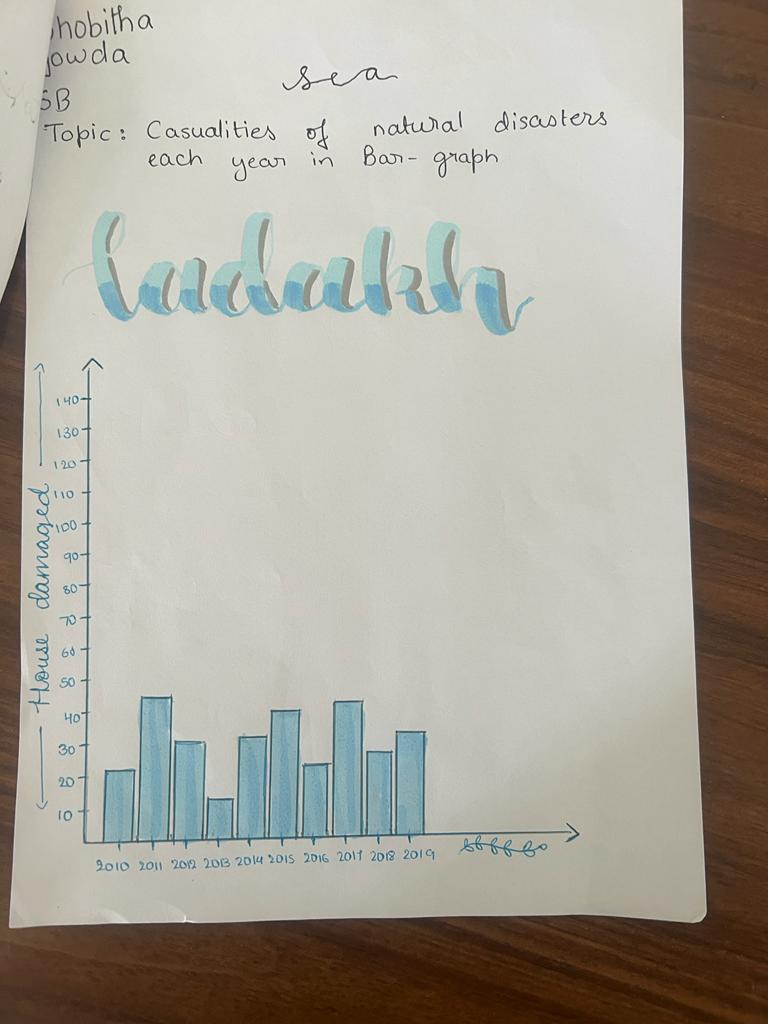 hobitha
owda
sea
5B
Topic: Casualities of natural disasters
each year in Bar- graph
ladakh
House damaged
140
130
120
110
100
90
80
70
60
50
40
30
20
10
2010 2011 2012 2013 2014 2015 2016 2017 2018 2019